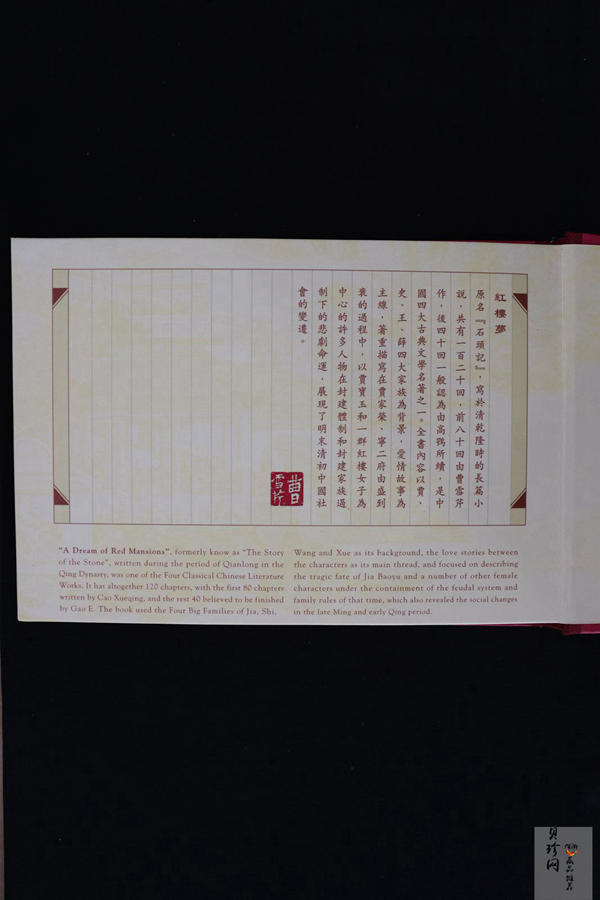 紅樓夢
原名『石頭記』，寫於清乾隆時的長篇小
說，共有一百二十回，前八十回由曹雪芹
作，後四十回一般認為由高鶚所續，是中
國四大古典文學名著之一。全書內容以賈、
史、王、薛四大家族為背景，愛情故事為
主線，著重描寫在賈家榮、寧二府由盛到
衰的過程中，以賈寶玉和一群紅樓女子為
中心的許多人物在封建體制和封建家族遏
制下的悲劇命運，展現了明末清初中國社
會的變遷。
曹
雪芹
"A Dream of Red Mansions", formerly know as "The Story
of the Stone", written during the period of Qianlong in the
Qing Dynasty, was one of the Four Classical Chinese Literature
Works. It has altogether 120 chapters, with the first 80 chapters
written by Cao Xueqing, and the rest 40 believed to be finished
by Gao E. The book used the Four Big Families of Jia, Shi,
Wang and Xue as its background, the love stories between
the characters as its main thread, and focused on describing
the tragic fate of Jia Baoyu and a number of other female
characters under the containment of the feudal system and
family rules of that time, which also revealed the social changes
in the late Ming and early Qing period.
貝珍网
藏品推荐